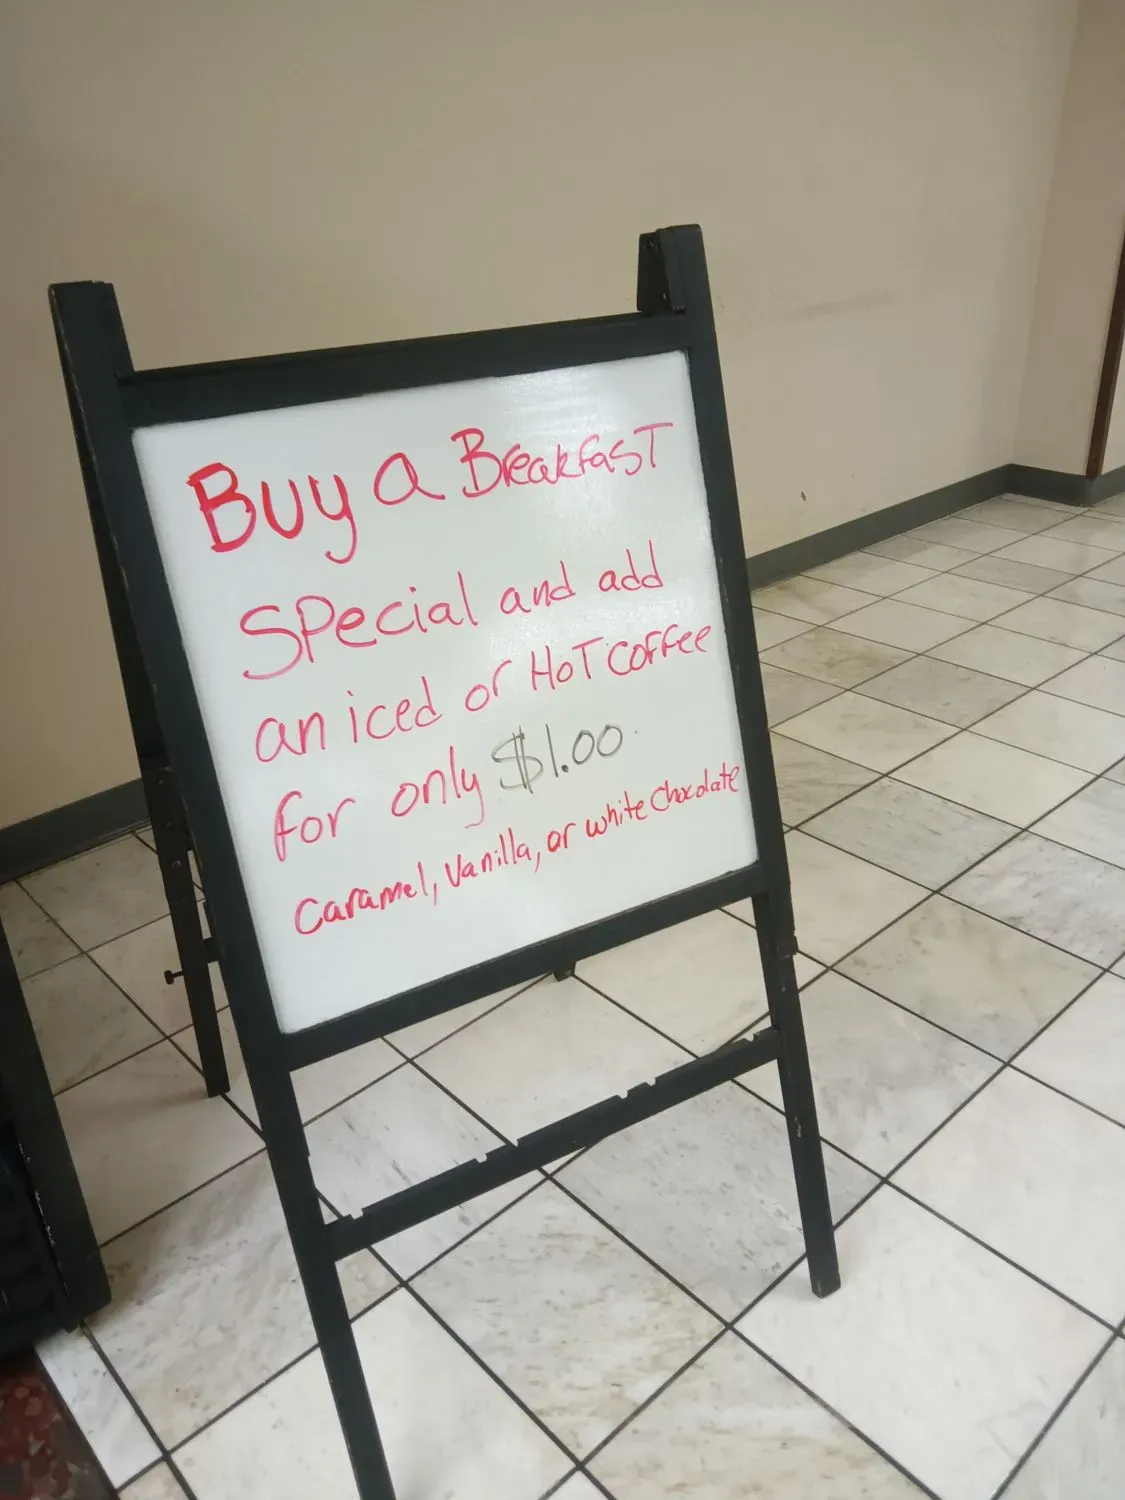 Buy a Breakfast
Special and add
an iced or Hot coffee
for only $1.00
Caramel, Vanilla, or white Chocolate